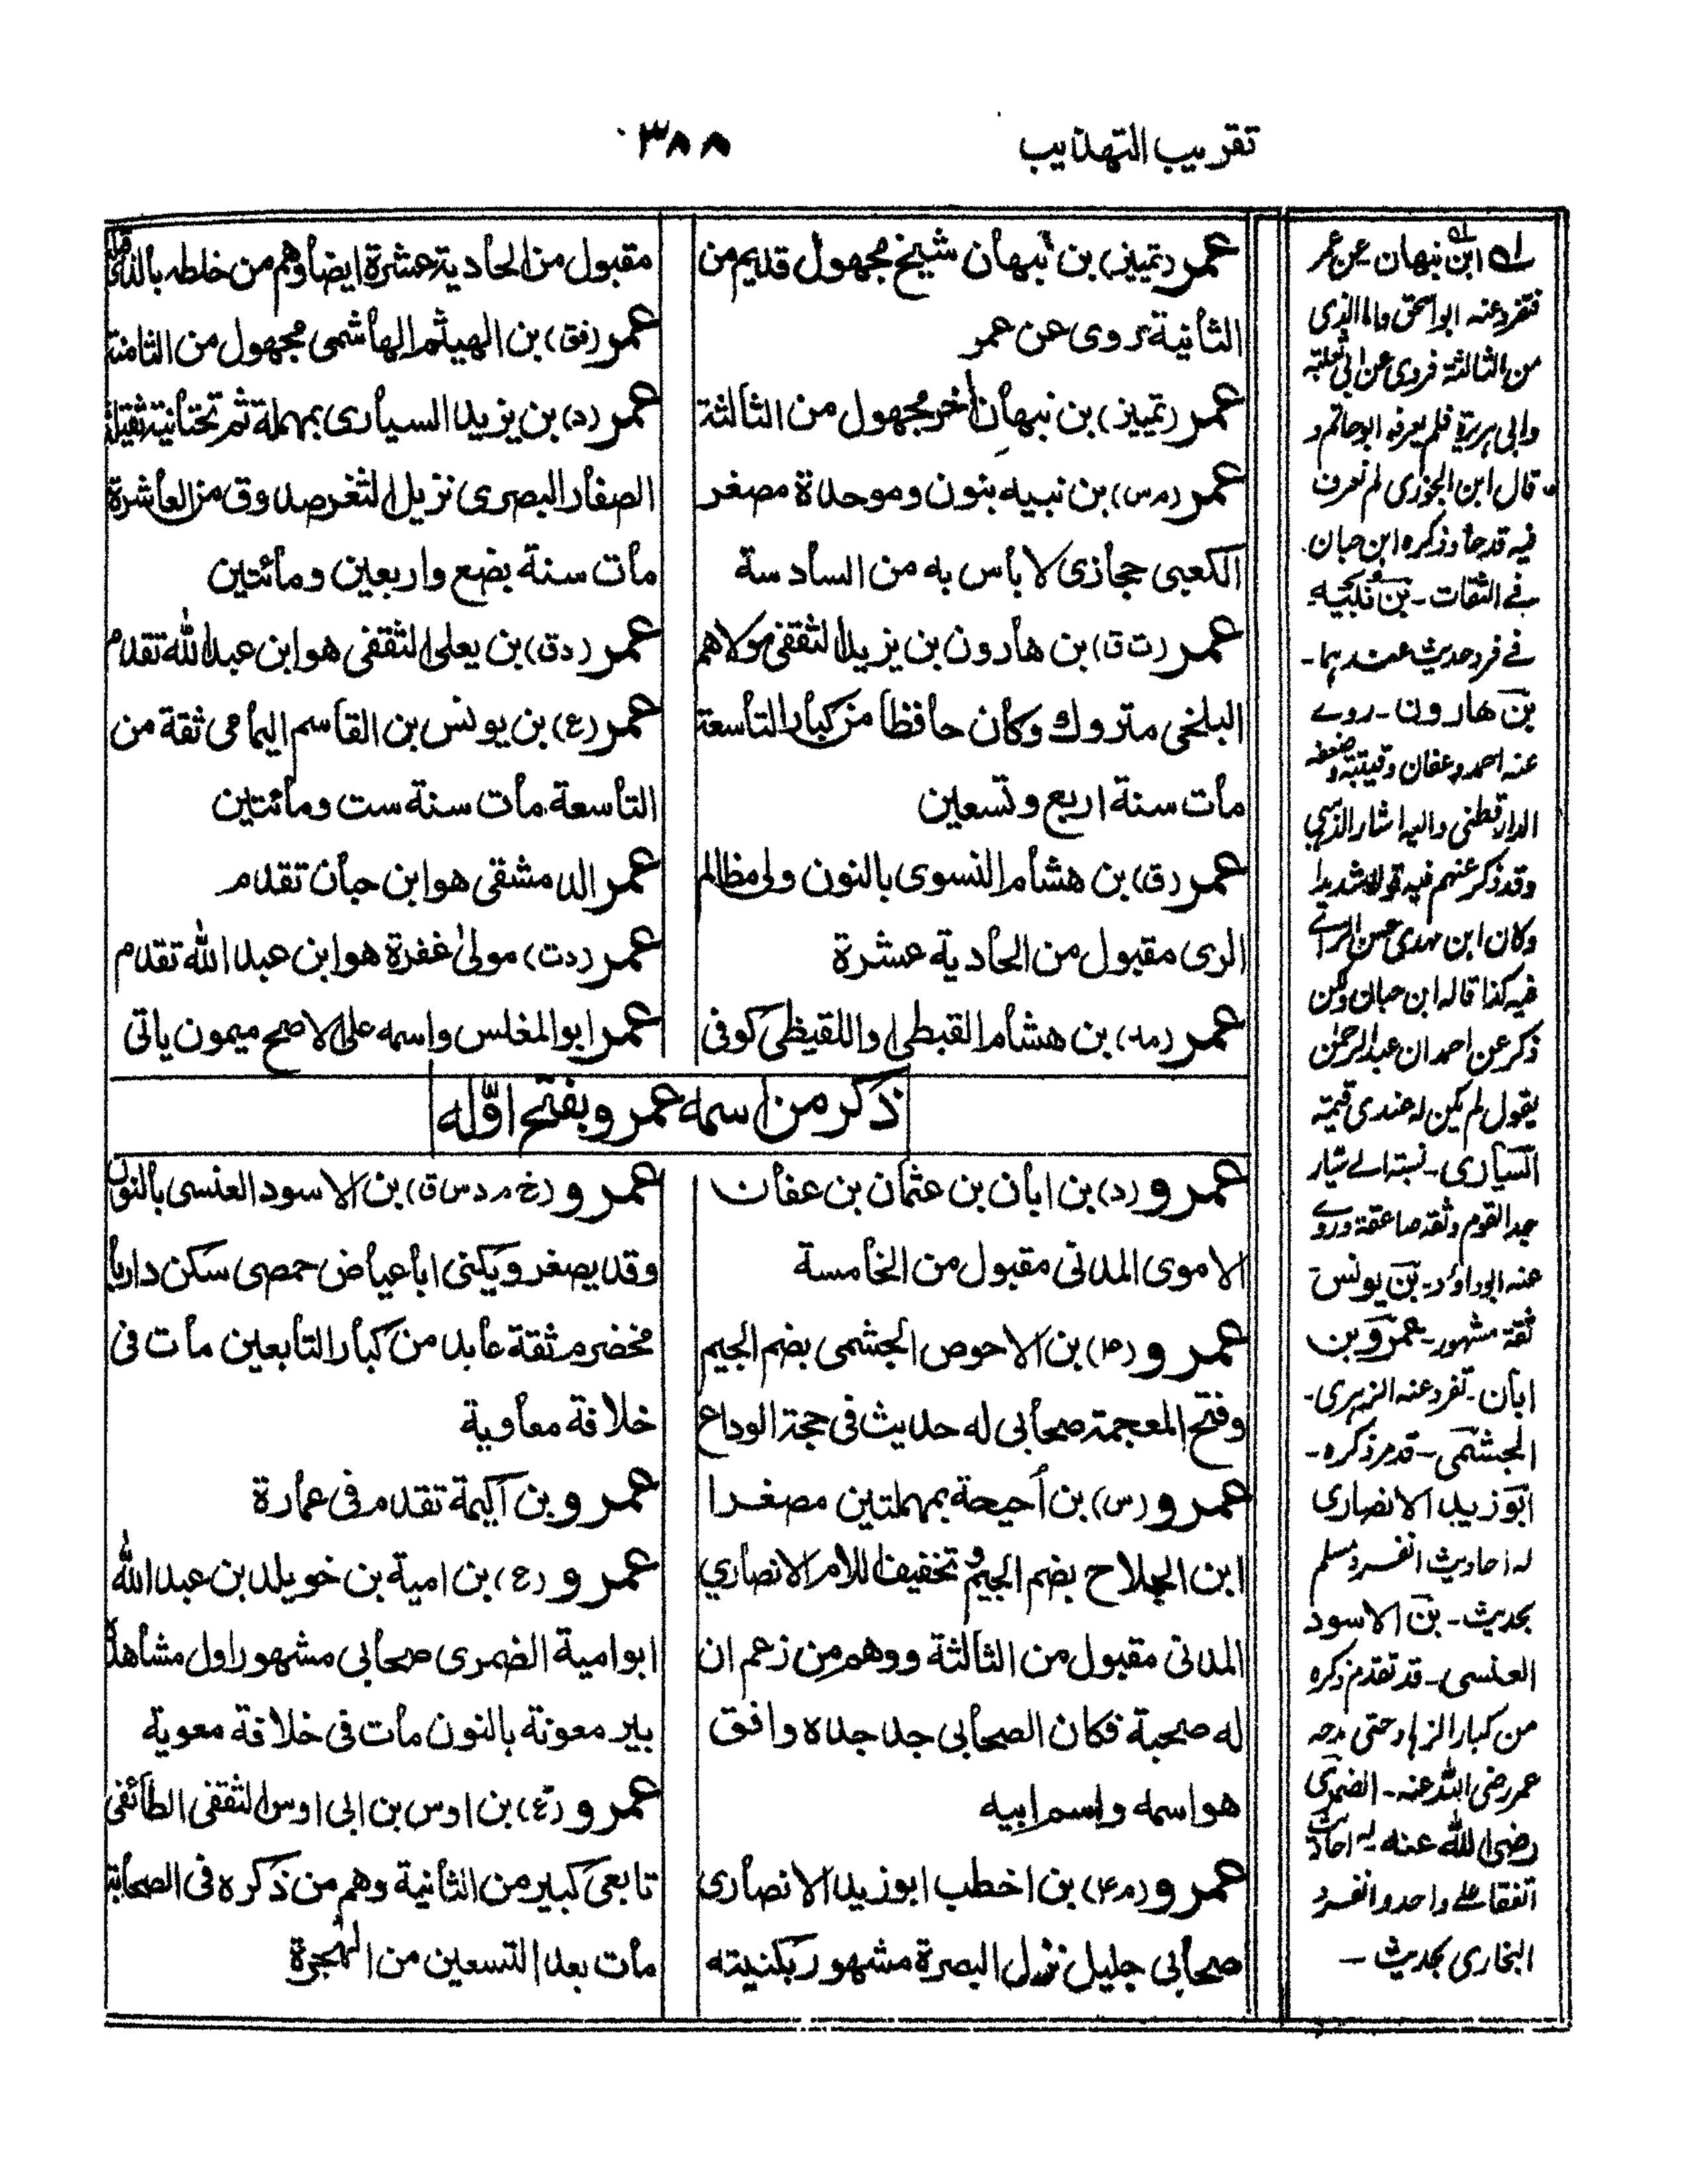 تقريب التهذيب
٣٨٨
عمر (تمييز) بن نبهان شيخ مجهول قديم من
الثانية روى عن عمر
عمر (تمييز) بن نبهان آخر مجهول من الثالثة
عمر (م س) بن نبيه بنون وموحدة مصغر
الكعبي حجازى لا باس به من السادسة
عمر (ت ق) بن هارون بن يزيد الثقفى مولاهم
البلخى متروك وكان حافظا من كبار التاسعة
مات سنة اربع وتسعين
عمر (ق) بن هشام النسوى بالنون ولى مظالم
الرى مقبول من الحادية عشرة
عمر (مد) بن هشام القبطى او اللقيظى كوفى
مقبول من الحادية عشرة ايضا وهم من خلطه بالذى قبله
عمر (فق) بن الهيثم الهاشمى مجهول من الثامنة
عمر (د) بن يزيد السيارى بمهملة ثم تحتانية ثقيلة
الصفار البصرى نزيل الثغر صدوق من العاشرة
مات سنة بضع واربعين ومائتين
عمر (د ق) بن يعلى الثقفى هو ابن عبد الله تقدم
عمر (ع) بن يونس بن القاسم اليمامى ثقة من
التاسعة مات سنة ست ومائتين
عمر الدمشقى هو ابن حبان تقدم
عمر (د ت) مولى غفرة هو ابن عبد الله تقدم
عمر ابو المغلس واسمه على الاصح ميمون ياتى
ذكر من اسمه عمرو بفتح اوّله
عمرو (د) بن ابان بن عثمان بن عفان
الاموى المدنى مقبول من الخامسة
عمرو (٤) بن الاحوص الجشمى بضم الجيم
وفتح المعجمة صحابى له حديث فى حجة الوداع
عمرو (س) بن أحيحة بمهملتين مصغرا
ابن الجلاح بضم الجيم وتخفيف اللام الانصاري
المدنى مقبول من الثالثة ووهم من زعم ان
له صحبة فكان الصحابى جد جده وافق
هو اسمه واسم ابيه
عمرو (م ٤) بن اخطب ابو زيد الانصارى
صحابى جليل نزل البصرة مشهور بكنيته
عمرو (خ م د س ق) بن الاسود العنسى بالنون
وقد يصغر ويكنى ابا عياض حمصى سكن داريا
مخضرم ثقة عابد من كبار التابعين مات فى
خلافة معاوية
عمرو بن اكيمة تقدم فى عمارة
عمرو (ع) بن امية بن خويلد بن عبد الله
ابو امية الضمرى صحابى مشهور اول مشاهده
بير معونة بالنون مات فى خلافة معوية
عمرو (ع) بن اوس بن ابى اوس الثقفى الطائفى
تابعى كبير من الثانية وهم من ذكره فى الصحابة
مات بعد التسعين من الهجرة
له ابن نبهان عن عمر
فتفرد عنه ابو اسحق واما الذى
من الثالثة فروى عن ابى ثعلبة
وابى هريرة فلم يعرفه ابو حاتم و
قال ابن الجوزى لم نعرف
فيه قدحا وذكره ابن حبان
فے الثقات ـ بن نبيه
فے فرد حديث عندهما ـ
بن هارون ـ روے
عنه احمد وعفان وقتيبة وضعفه
الدارقطنى واليه اشار الذهبى
وقد ذكر عنهم فيه قولا شديدا
وكان ابن مهدى حسن الرائے
فيه كذا قاله ابن حبان ولكن
ذكر عن احمد ان عبد الرحمٰن
يقول لم يكن له عندى قيمة
السيارى ـ نسبة الے سيار
جد القوم وثقه صاعقة وروے
عنه ابو داؤد ـ بن يونس
ثقة مشهور ـ عمرو بن
ابان ـ تفرد عنه الزهرى ـ
الجشمى ـ قد مر ذكره ـ
ابو زيد الانصارى
له احاديث انفرد مسلم
بحديث ـ بن الاسود
العنسى ـ قد تقدم ذكره
من كبار الزهاد حتى مدحه
عمر رضى الله عنه ـ الضمرى
رضى الله عنه له احاديث
اتفقا علے واحد وانفرد
البخارى بحديث ـ